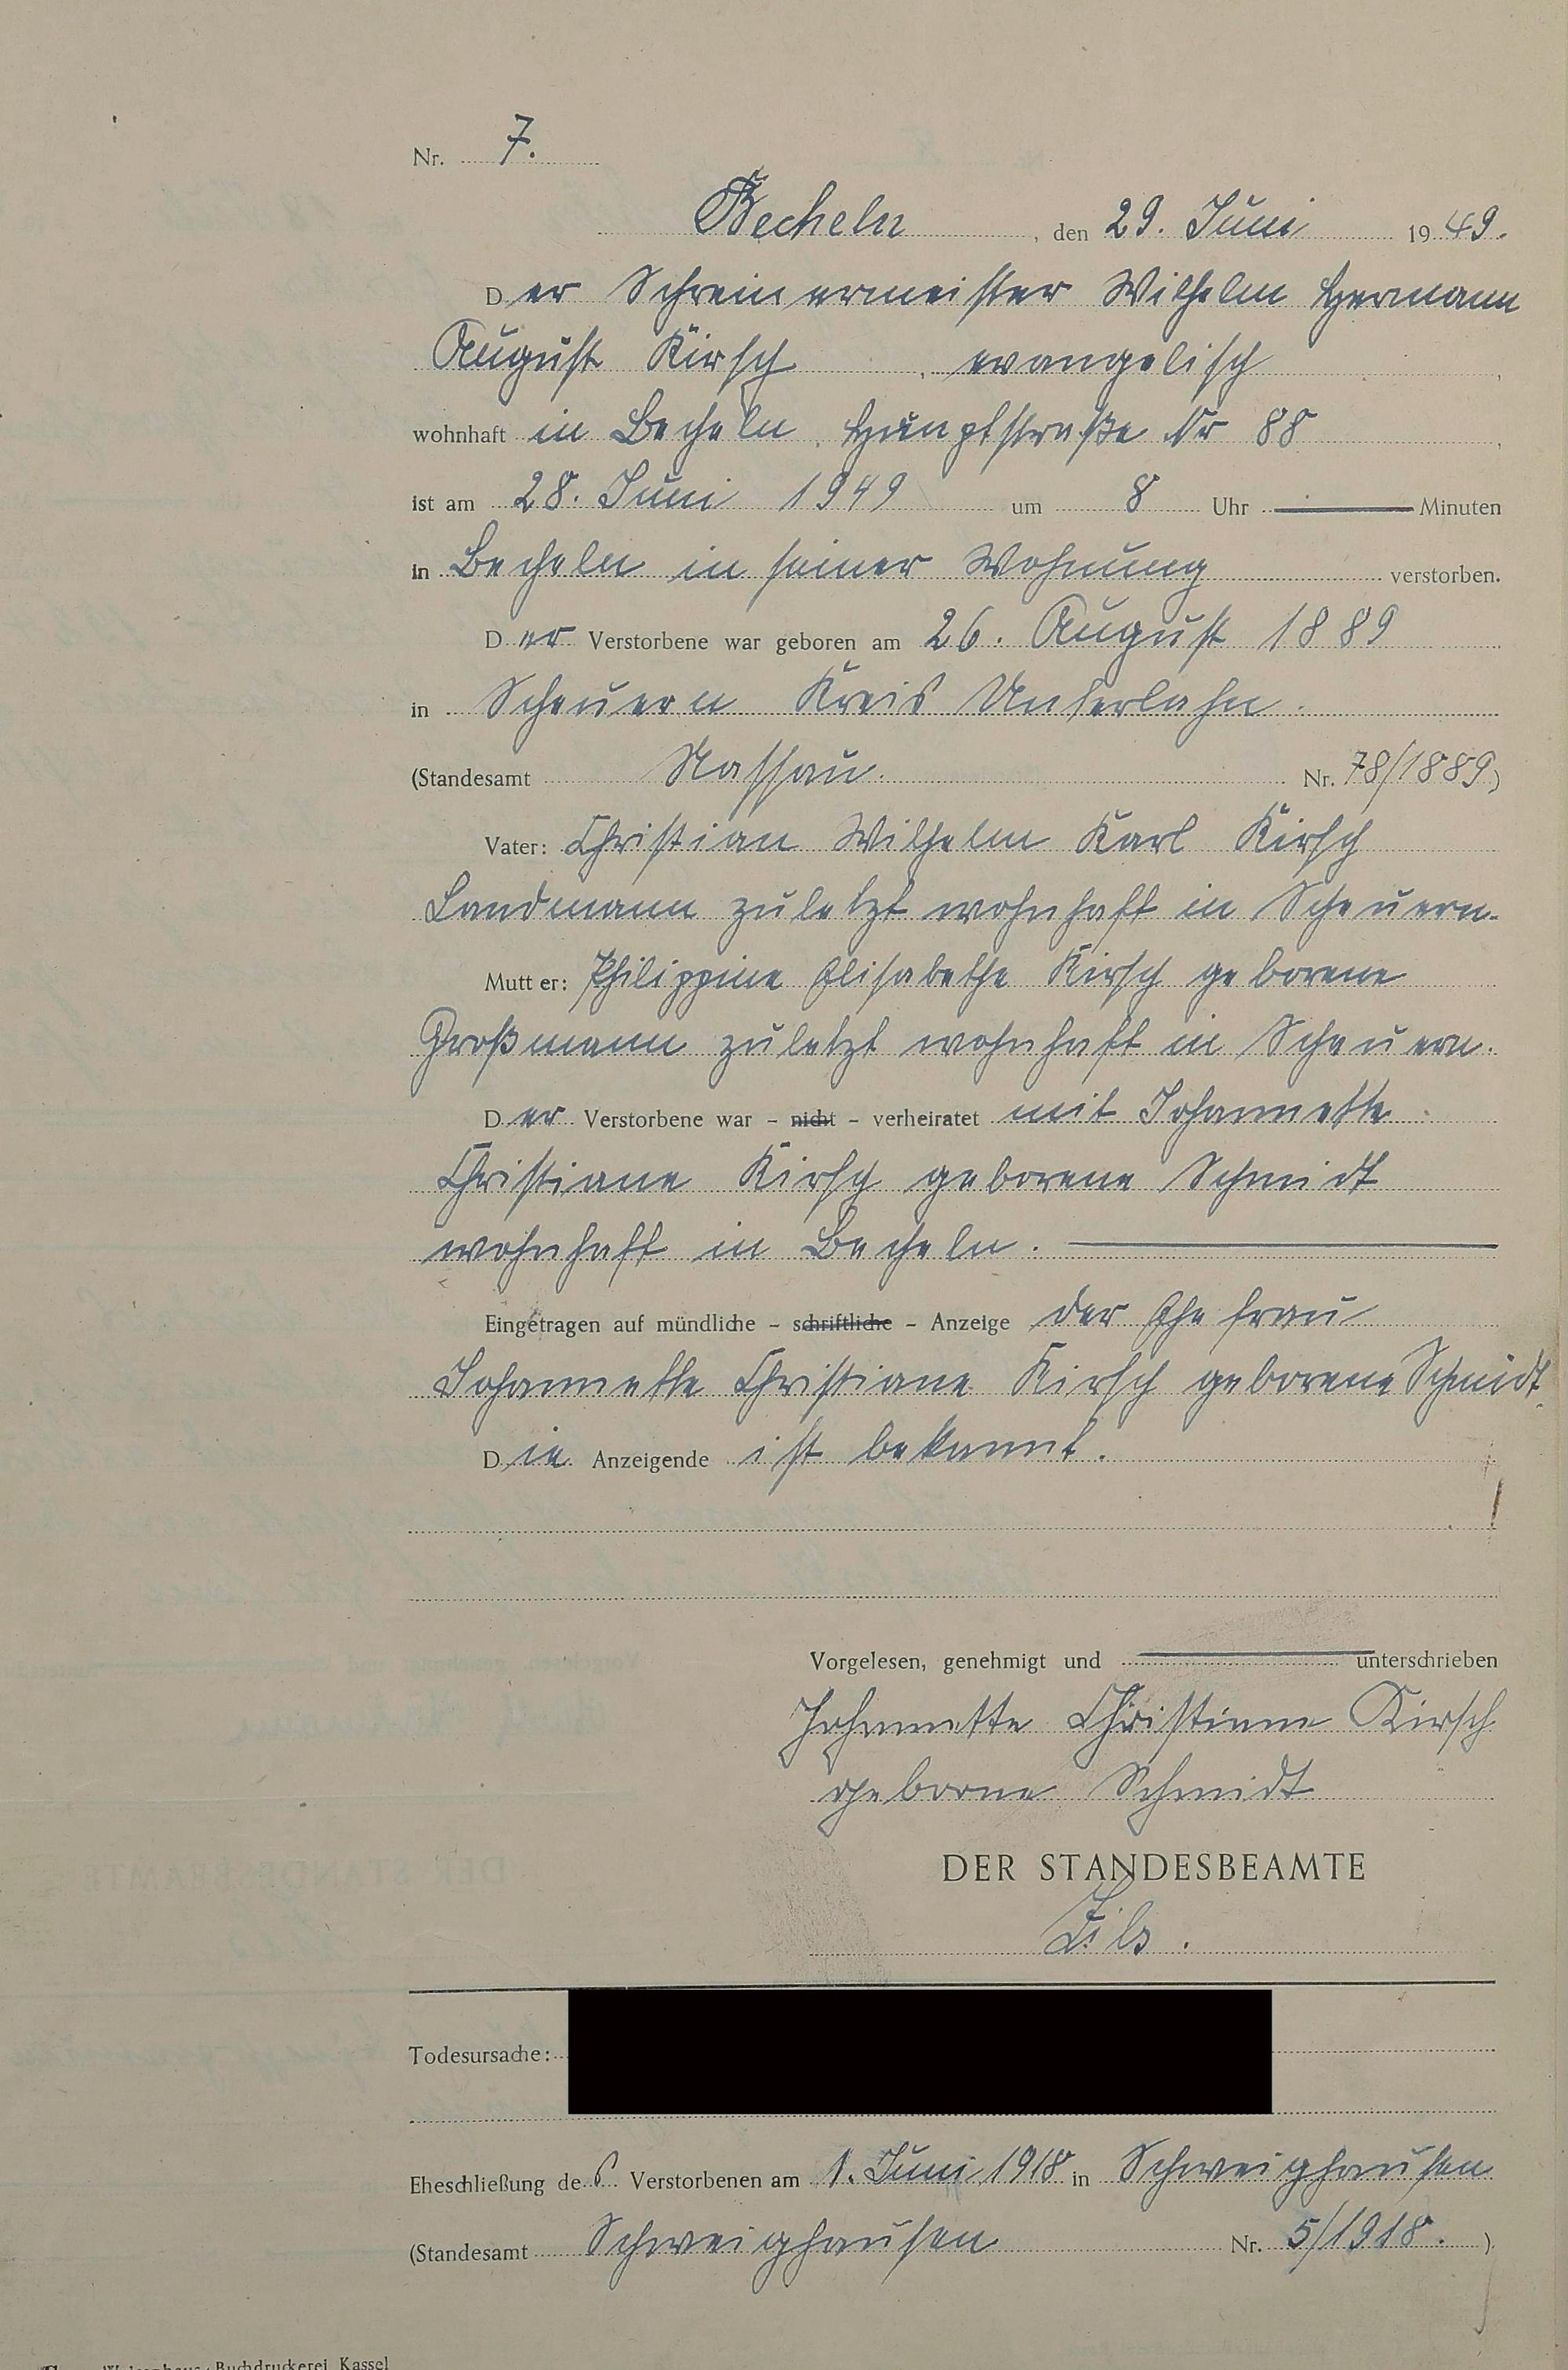 Nr. 7.
Becheln, den 29. Juni 1949.
Der Schreinermeister Wilhelm Hermann
August Kirsch, evangelisch,
wohnhaft in Becheln, Hauptstraße Nr 88,
ist am 28. Juni 1949 um 8 Uhr — Minuten
in Becheln in seiner Wohnung verstorben.
Der Verstorbene war geboren am 26. August 1889
in Scheuern Kreis Unterlahn.
(Standesamt Nassau. Nr. 78/1889)
Vater: Christian Wilhelm Karl Kirsch
Landmann zuletzt wohnhaft in Scheuern.
Mutter: Philippine Elisabethe Kirsch geborene
Großmann zuletzt wohnhaft in Scheuern.
Der Verstorbene war – nicht – verheiratet mit Johannette
Christiane Kirsch geborene Schmidt
wohnhaft in Becheln. —
Eingetragen auf mündliche – schriftliche – Anzeige der Ehefrau
Johannette Christiane Kirsch geborene Schmidt.
Die Anzeigende ist bekannt.
Vorgelesen, genehmigt und — unterschrieben
Johannette Christiane Kirsch
geborne Schmidt
DER STANDESBEAMTE
Zils.
Todesursache:
Eheschließung des Verstorbenen am 1. Juni 1918 in Schweighausen
(Standesamt Schweighausen Nr. 5/1918.)
Buchdruckerei Kassel